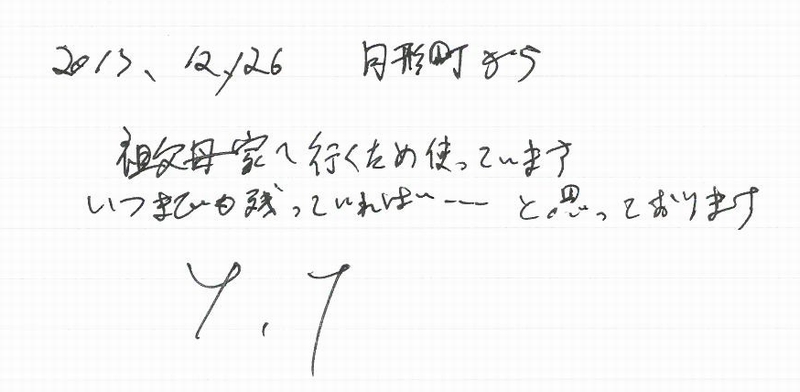 2013、12/26 月形町から
祖父母家へ行くため使っています
いつまでも残っていればいーー と思っております
Y.T